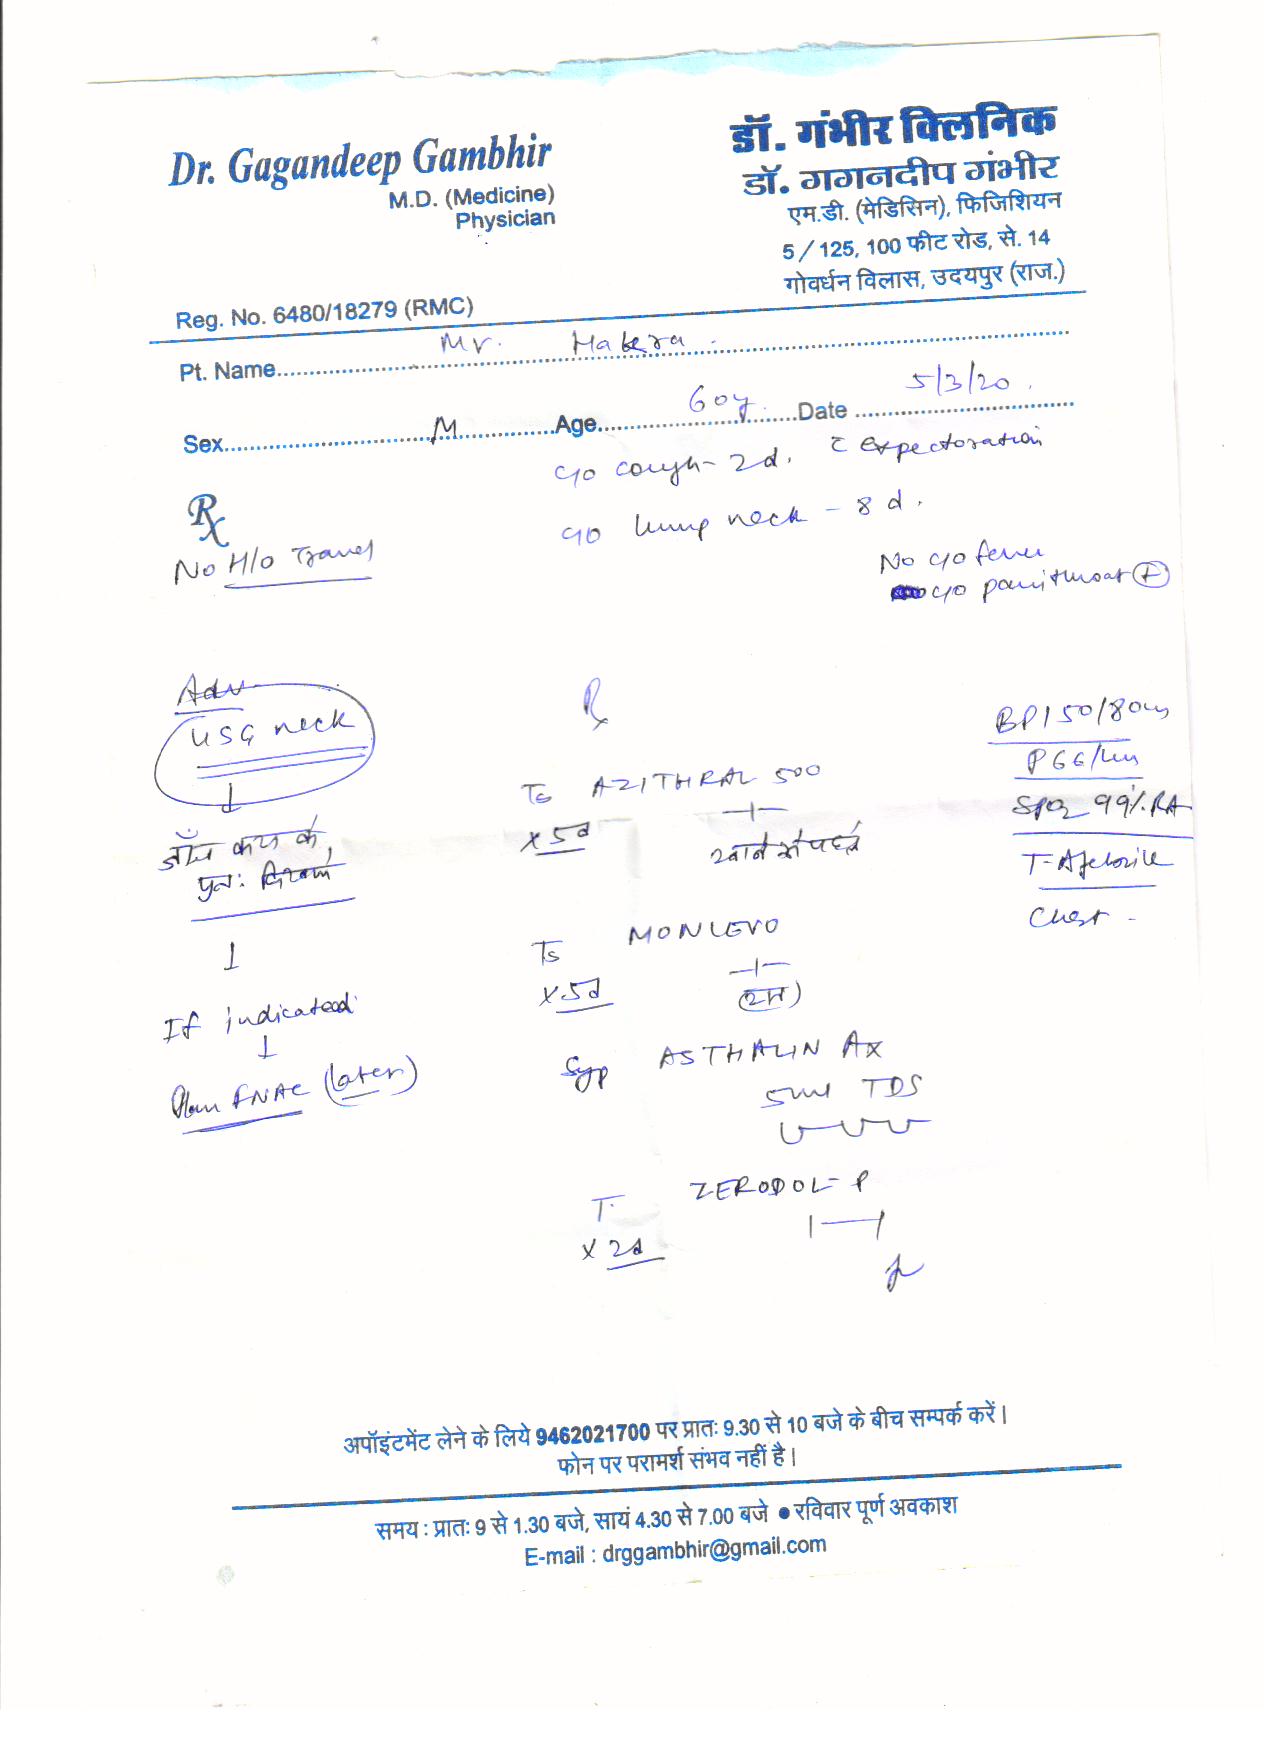 Dr. Gagandeep Gambhir
M.D. (Medicine)
Physician
Reg. No. 6480/18279 (RMC)
डॉ. गंभीर क्लिनिक
डॉ. गगनदीप गंभीर
एम.डी. (मेडिसिन), फिजिशियन
5/125, 100 फीट रोड, से. 14
गोवर्धन विलास, उदयपुर (राज.)
Pt. Name Mr. Hakera
Sex M Age 60y Date 5/3/20
c/o cough - 2d. c̄ Expectoration
Rx
c/o lump neck - 8 d.
No H/o Travel
No c/o fever
c/o pain throat +
Adv
USG neck
↓
जाँच करा के
पुनः दिखाएं
↓
If indicated
↓
Plan FNAC (later)
Rx
Tb AZITHRAL 500
x 5d
खाने से पहले
Tb MONLEVO
x 5d
Syp ASTHALIN AX
5ml TDS
T. ZERODOL-P
x 2d
BP 150/80
P 66/min
SpO2 99% RA
T-Afebrile
Chest -
अपॉइंटमेंट लेने के लिये 9462021700 पर प्रातः 9.30 से 10 बजे के बीच सम्पर्क करें।
फोन पर परामर्श संभव नहीं है।
समय : प्रातः 9 से 1.30 बजे, सायं 4.30 से 7.00 बजे ● रविवार पूर्ण अवकाश
E-mail : drggambhir@gmail.com